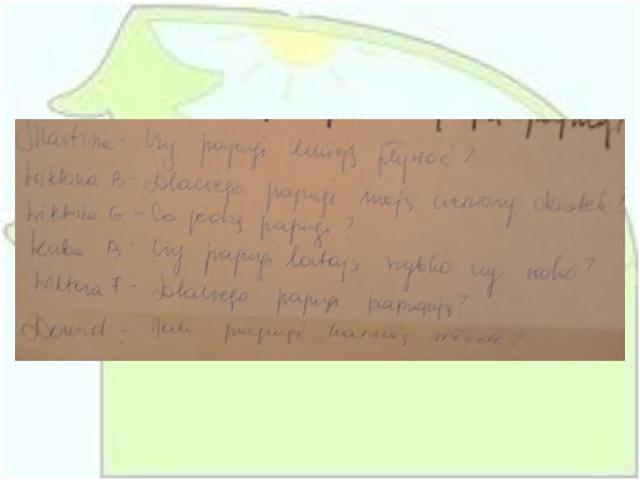 Martina - Czy papugi umieją pływać?
Wiktoria B - Dlaczego papugi mają czerwony dziobek?
Wiktoria G - Co jedzą papugi?
Kuba B - Czy papugi latają szybko czy wolno?
Wiktoria F - Dlaczego papugi papugują?
Dawid - Jak papugi karmią młode?